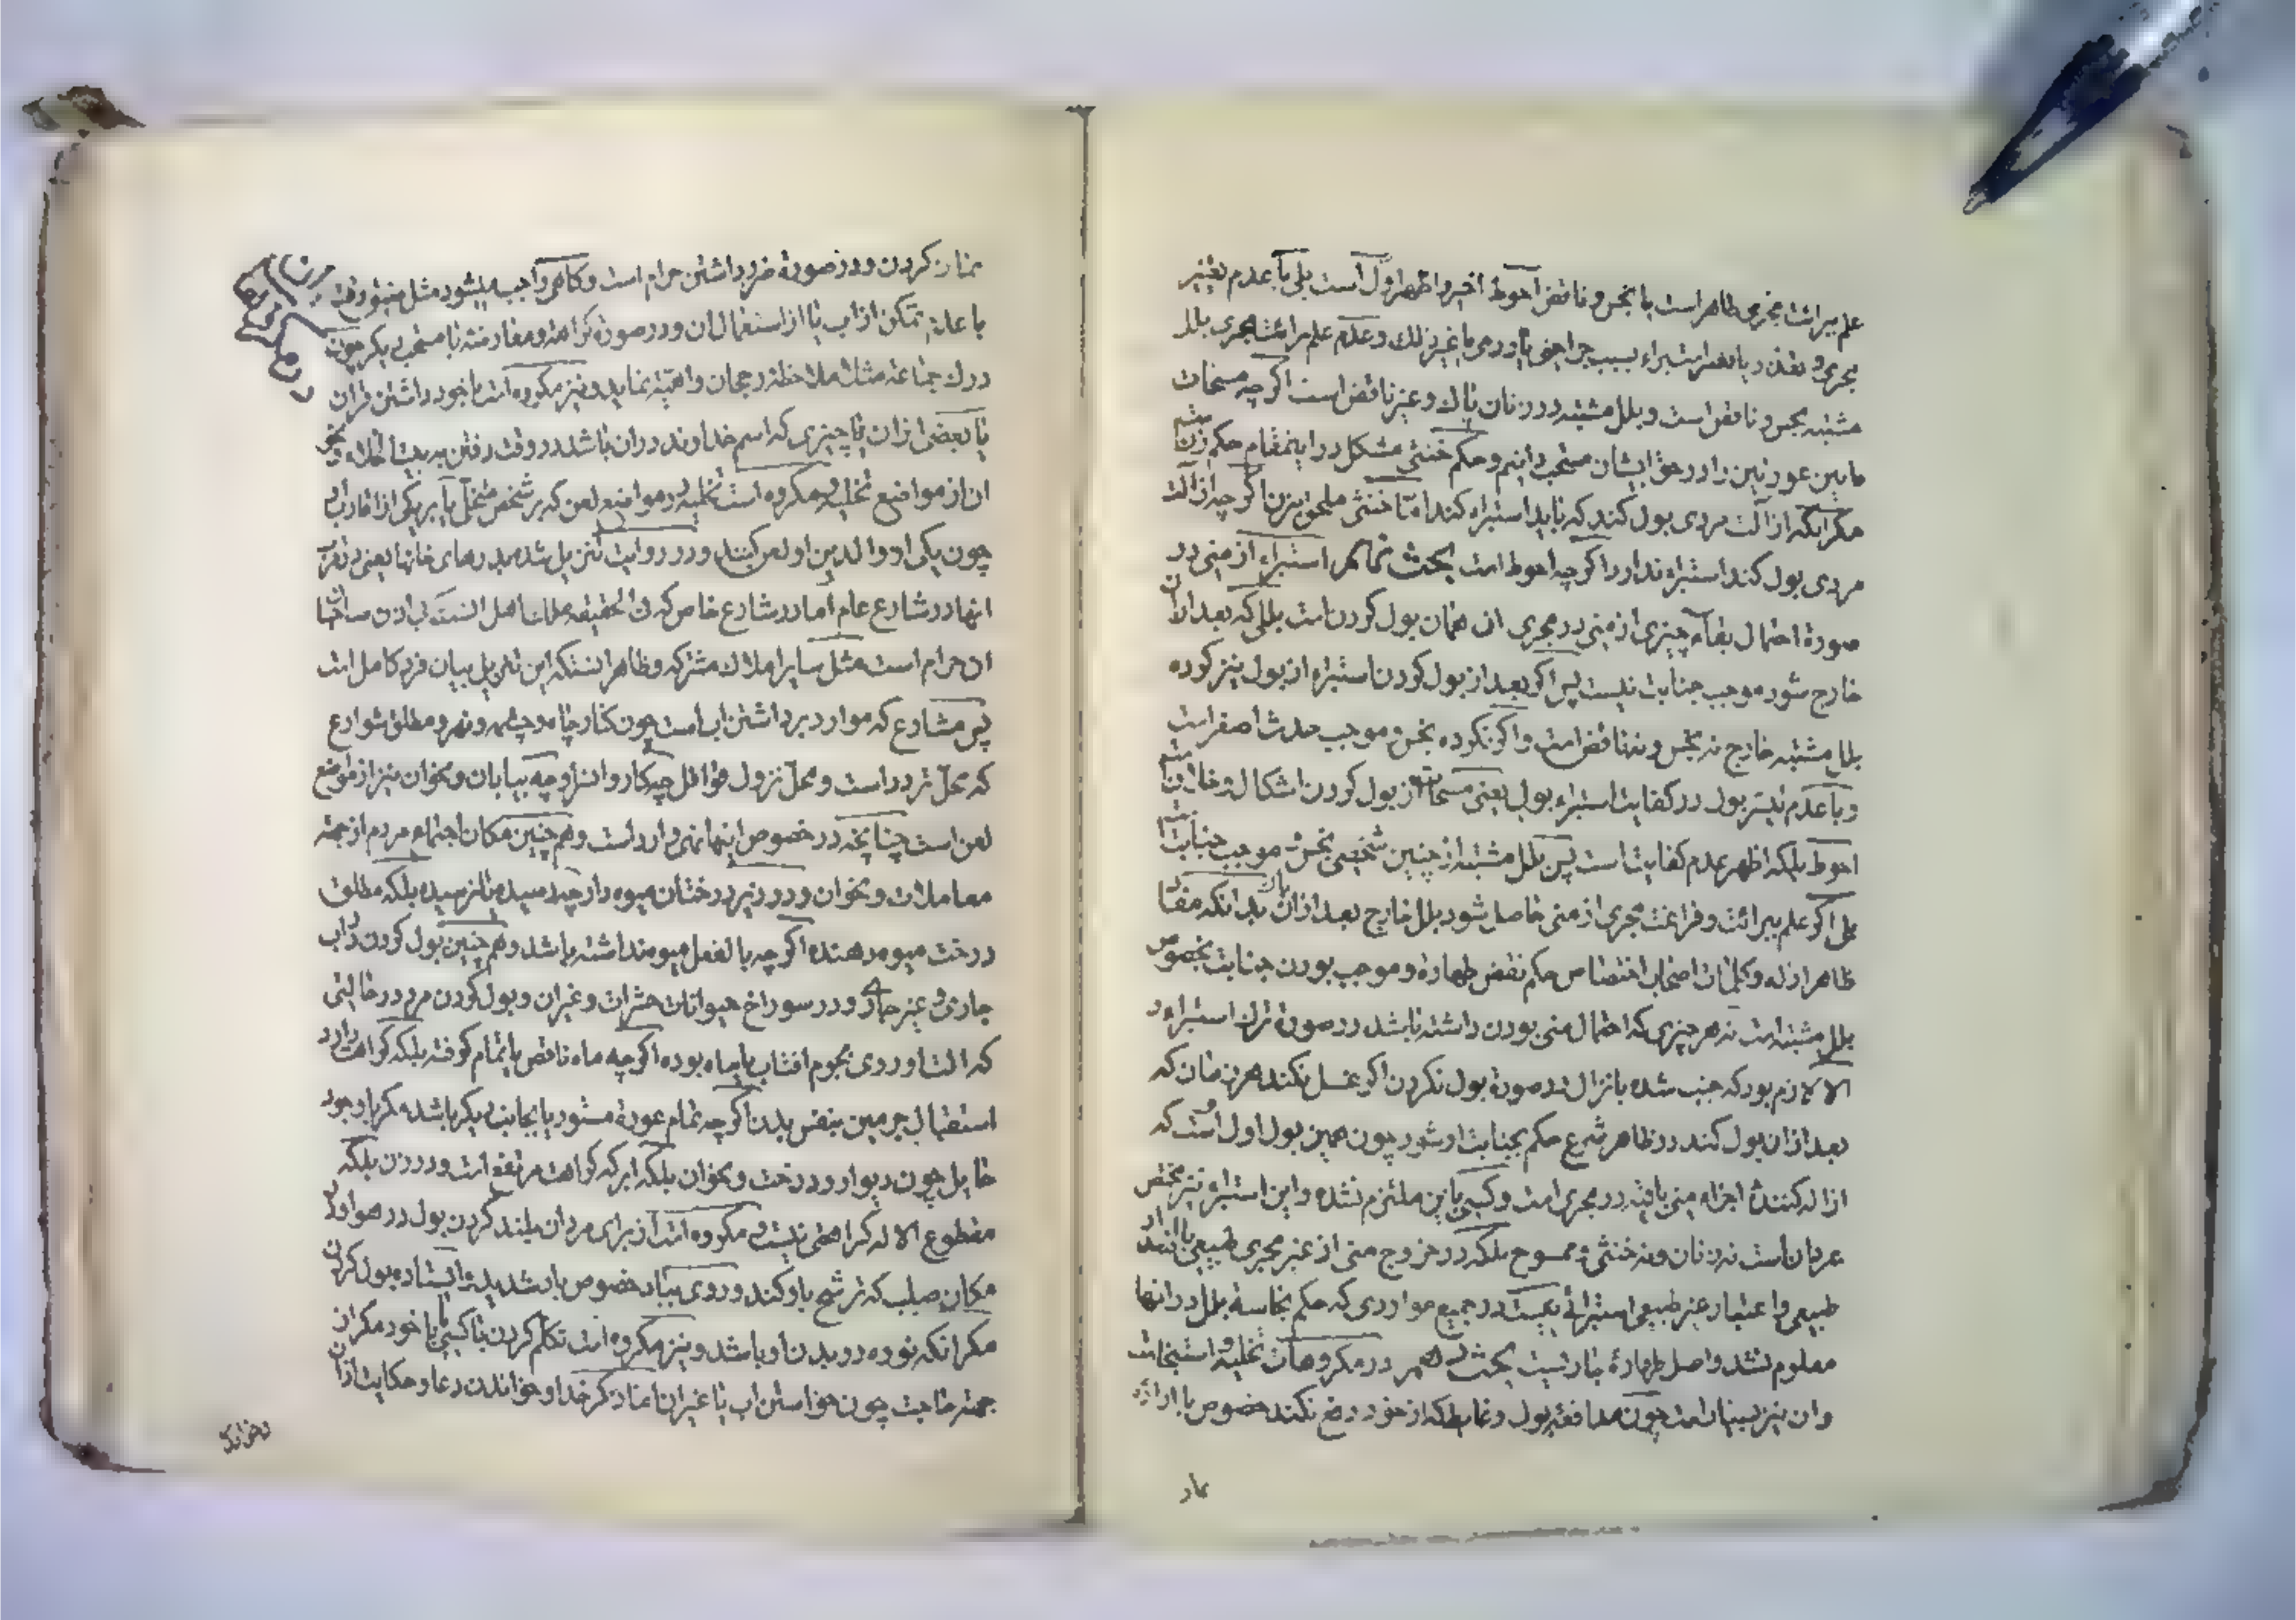 علم ببرائت مجری طاهر است یا نجس و ناقض احوط اخیر و اظهر اول است بلی با عدم تغییر
مجری و تعذر یا تعسر استبراء بسبب جراحتی یا وردمی یا غیر ذلك و عدم علم ببرائت مجری بلل
مشتبه نجس و ناقض است و بلل مشتبه در زنان پاك و غیر ناقض است اگرچه مسحات
مابین عورتین را در حق ایشان مستحب دانیم و حکم خنثی مشکل در اینمقام حکم زن
مگر انکه از الت مردی بول کند که باید استبراء کند اما خنثی ملحق بزن اگرچه از الت
مردی بول کند استبراء ندارد اگرچه احوط است بحث استبراء از منی در
صورة احتمال بقآء چیزی از منی در مجری ان همان بول کردن است بللی که بعد از ان
خارج شود موجب جنابت نیست پس اگر بعد از بول کردن استبراء از بول نیز کرده
بلل مشتبه خارج نه نجس و نه ناقض است و اگر نکرده نجس و موجب حدث اصغر است
و با عدم تیسر بول در کفایت استبراء بول یعنی مسحات از بول کردن اشکال و خلاف
احوط بلکه اظهر عدم کفایت است پس بلل مشتبه از چنین شخصی نجس و موجب جنابت
بلی اگر علم ببرائت و فراغت مجری از منی حاصل شود بلل خارج بعد از ان پاك بدانکه مفاد
ظاهر ادله و کلمات اصحاب اختصاص حکم نقض طهارة و موجب بودن جنابت بخصوص
بلل مشتبه است نه هر چیزی که احتمال منی بودن داشته باشد در صورة ترك استبراء و
الا لازم بود که جنب شده بانزال در صورة بول نکردن اگر غسل نکند هر زمان که
بعد از ان بول کند در ظاهر شرع حکم بجنابت او شود چون همین بول اول است که
ازاله کنندهٔ اجزاء منی باقیه در مجری است و کسی باین ملتزم نشده و این استبراء نیز مختص
مردان است نه زنان و نه خنثی و ممسوح بلکه در خروج منی از غیر مجری طبیعی با انسداد
طبیعی و اعتیاد غیر طبیعی استبرائی نیست در جمیع مواردی که حکم نجاسة بلل در انها
معلوم نشد و اصل طهارة جاریست بحث در مکروهات تخلیه و استنجاست
و ان نیز بسیار است چون مدافعه بول و غایط که از خود دفع نکند خصوص با ارادهٔ
نماز
نماز کردن و در صورة ضرر داشتن حرام است و گاهی واجب میشود مثل ضیق وقت
با عدم تمکن از اب یا از استعمال ان و در صورة کراهة و معارضه با مستحب دیگر چون
درك جماعة مثلا ملاحظه رجحان و اهمیة نماید و نیز مکروه است با خود داشتن قران
یا بعضی از ان یا چیزی که اسم خداوند در ان باشد در وقت رفتن به بیت الخلاء و نحو
ان از مواضع تخلیه و مکروه است تخلیه در مواضع لعن که بر شخص متخلی یا بر یکی از اقارب او
چون یکی از والدین او لعن کنند و در روایت تنزیل شده بدرهای خانها یعنی در قرب
انها در شارع عام اما در شارع خاص که فی الحقیقه ملك اهل انست بی اذن صاحبان
ان حرام است مثل سایر املاك مشترکه و ظاهر انستکه این تنزیل بیان فرد کامل است
پس مشارع که موارد برداشتن اب است چون کنار چاه و چشمه و نهر و مطلق شوارع
که محل تردد است و محل نزول قوافل چه کاروانسرا و چه بیابان و نحو ان نیز از مواضع
لعن است چنانچه در خصوص اینها نهی وارد است و هم چنین مکان اجتماع مردم از جهة
معاملات و نحو ان و در زیر درختان میوه دار چه رسیده یا نرسیده بلکه مطلق
درخت میوه دهنده اگرچه بالفعل میوه نداشته باشد و هم چنین بول کردن در اب
جاری و غیر جاری و در سوراخ حیوانات حشرات و غیر ان و بول کردن مرد در حالتی
که الت او روی بجرم افتاب یا ماه بوده اگرچه ماه ناقص یا تمام گرفته بلکه کراهت دارد
استقبال جرمین بنفس بدن اگرچه تمام عورة مستور یا بجانب دیگر باشد مگر با وجود
حایل چون دیوار و درخت و نحو ان بلکه ابر که کراهت مرتفع است و در زن بلکه
مقطوع الاله کراهتی نیست و مکروه است از برای مردان بلند کردن بول در هوا و در
مکان صلب که ترشح باو کند و روی بباد خصوص باد شدید و ایستاده بول کردن
مگر انکه نوره در بدن او باشد و نیز مکروه است تکلم کردن با کسی یا با خود مگر از
جهة حاجت چون خواستن اب یا غیر ان اما ذکر خدا و خواندن دعا و حکایت اذان